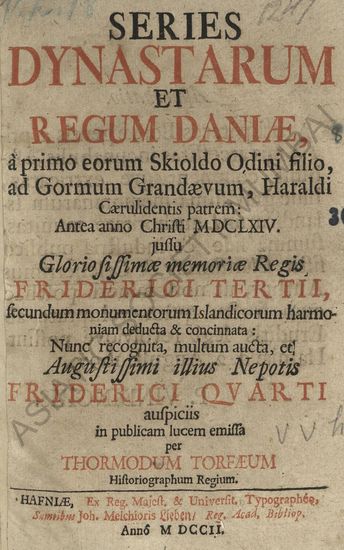 SERIES
DYNASTARUM
ET
REGUM DANIÆ,
à primo eorum Skioldo Odini filio,
ad Gormum Grandævum, Haraldi
Cærulidentis patrem:
Antea anno Christi MDCLXIV.
jussu
Gloriosissimæ memoriæ Regis
FRIDERICI TERTII,
secundum monumentorum Islandicorum harmo-
niam deducta & concinnata:
Nunc recognita, multum aucta, et
Augustissimi illius Nepotis
FRIDERICI QVARTI
auspiciis
in publicam lucem emissa
per
THORMODUM TORFÆUM
Historiographum Regium.
HAFNIÆ, Ex Reg. Majest. & Universit. Typographéo,
Sumtibus Joh. Melchioris Lieben/ Reg. Acad. Bibliop.
Annô M DCCII.